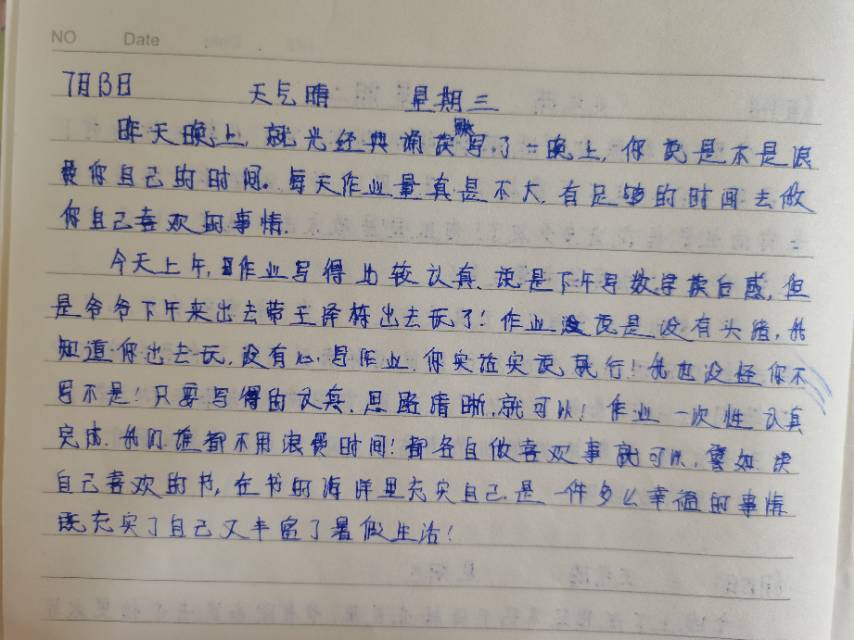 NO Date
7月13日 天气晴 星期三
昨天晚上,就光经典诵读账写了一晚上,你说是不是浪
费你自己的时间。每天作业量真是不大,有足够的时间去做
你自己喜欢的事情.
今天上午,作业写得比较认真,说是下午写数学读后感,但
是爷爷下午来出去带王泽栋出去玩了!作业没说是没有头绪,我
知道你出去玩,没有心写作业,你实话实说就行!我也没怪你不
写不是!只要写得的认真,思路清晰,就可以!作业一次性认真
完成,我们谁都不用浪费时间!都各自做喜欢事就可以,譬如:读
自己喜欢的书,在书的海洋里充实自己是一件多么幸福的事情
既充实了自己又丰富了暑假生活!